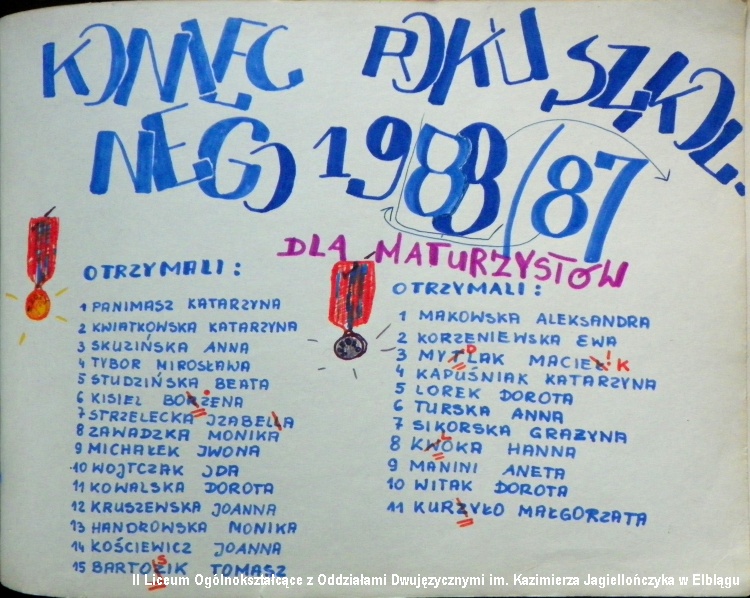 KONIEC ROKU SZKOL.
NEGO 1988/87
DLA MATURZYSTÓW
OTRZYMALI:
1 PANIMASZ KATARZYNA
2 KWIATKOWSKA KATARZYNA
3 SKUZIŃSKA ANNA
4 TYBOR MIROSŁAWA
5 STUDZIŃSKA BEATA
6 KISIEL BOŻENA
7 STRZELECKA IZABELLA
8 ZAWADZKA MONIKA
9 MICHAŁEK IWONA
10 WOJTCZAK IDA
11 KOWALSKA DOROTA
12 KRUSZEWSKA JOANNA
13 HANDROWSKA MONIKA
14 KOŚCIEWICZ JOANNA
15 BARTOSIK TOMASZ
OTRZYMALI:
1 MAKOWSKA ALEKSANDRA
2 KORZENIEWSKA EWA
3 MYDLAK MACIEK
4 KAPUŚNIAK KATARZYNA
5 LOREK DOROTA
6 TURSKA ANNA
7 SIKORSKA GRAZYNA
8 HANNA
9 MANINI ANETA
10 WITAK DOROTA
11 KURZYŁO MAŁGORZATA
II Liceum Ogólnokształcące z Oddziałami Dwujęzycznymi im. Kazimierza Jagiellończyka w Elblągu